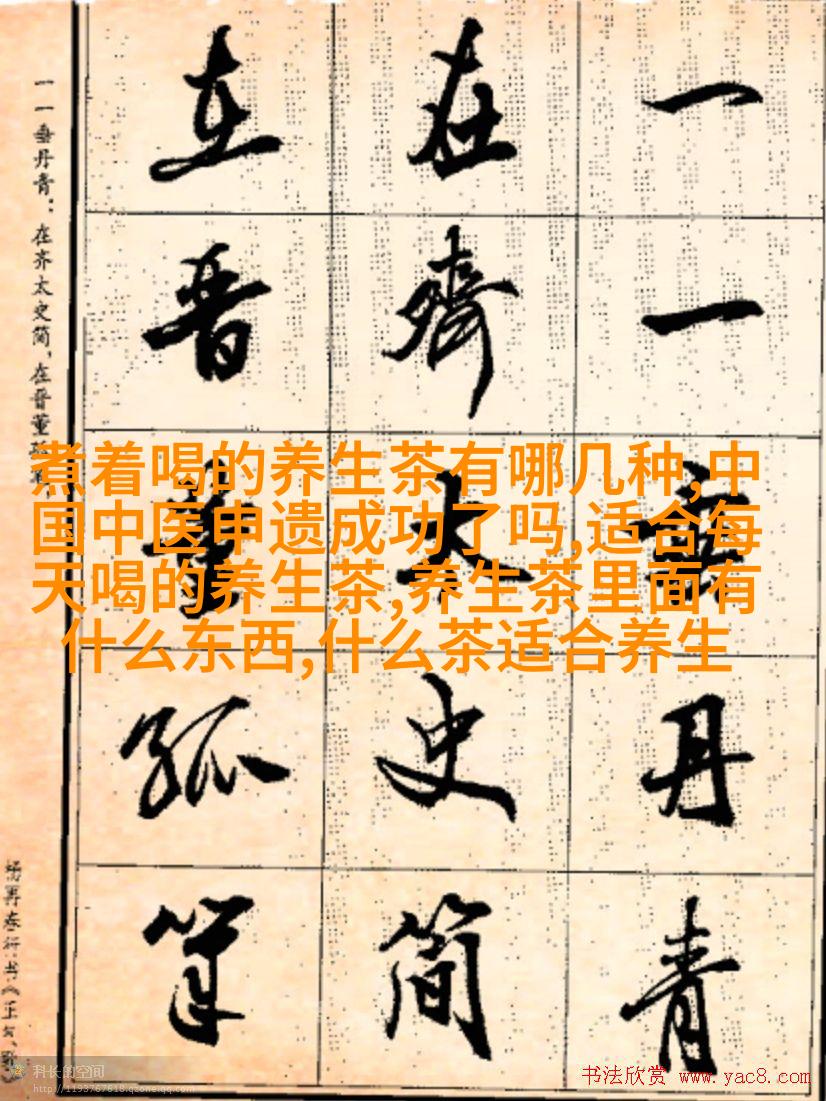 一一垂丹青
在齊太史简
在晋董狐筆
一一垂丹青：在齐太史简，在晋董狐
杨再春行书《正气歌
煮着喝的养生茶有哪几种,中
国中医申遗成功了吗,适合每
天喝的养生茶,养生茶里面有
什么东西,什么茶适合养生
科长的空间
http://1193767618.qzone.qq.com
书法欣赏 www.yac8.com